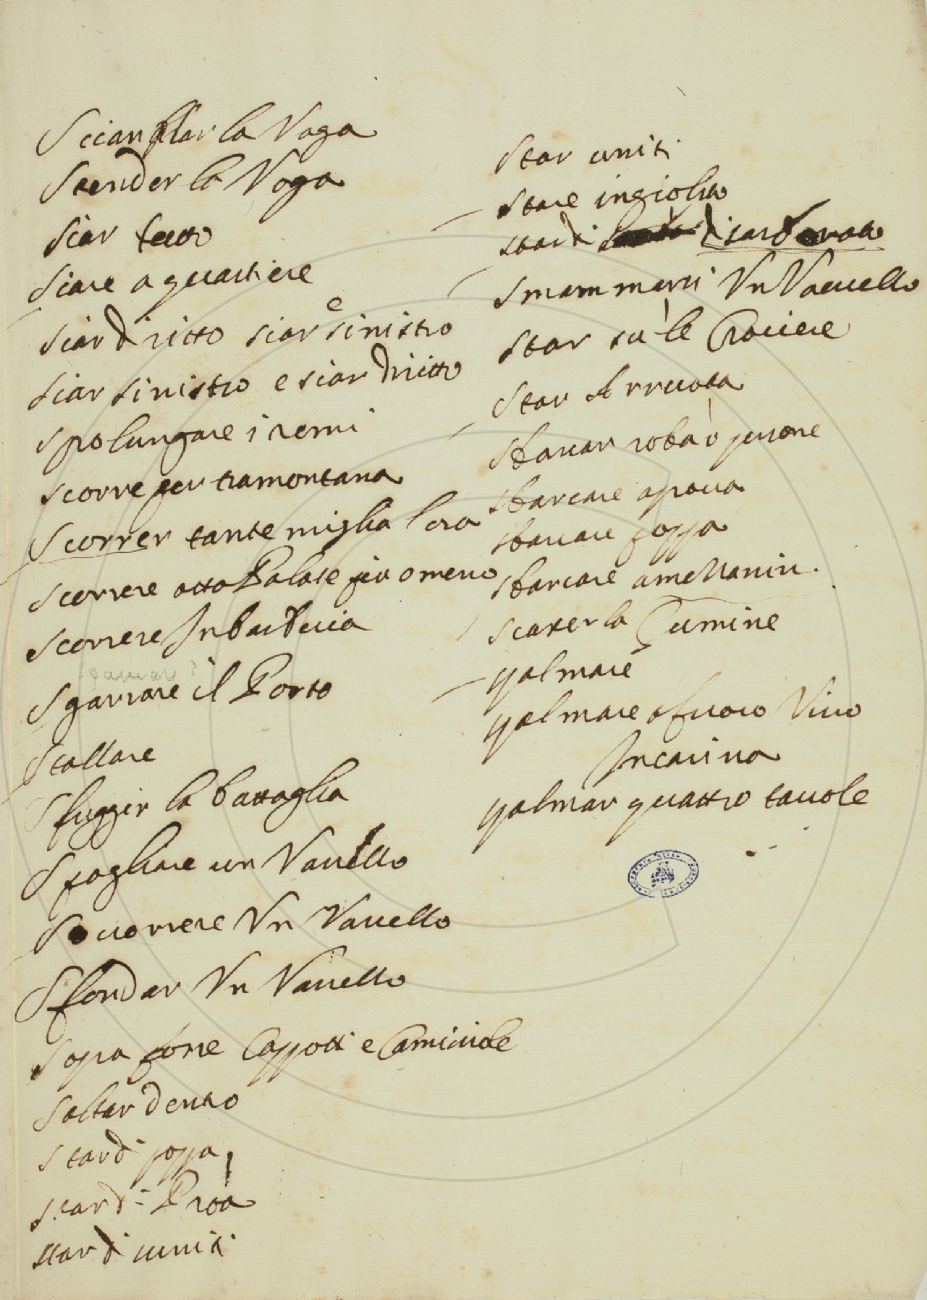 la Voga
Stender la Voga
Siar tutto
Siare a quartiere
Siar diritto siar e sinistro
Siar sinistro e siar driitto
Spolungare i remi
Scorre per tramontana
Scorrer tante miglia l'ora
Scorrere otto Palate più o meno
Scorrere In barbuia
Sgarrare il Porto
Scallare
Sfuggir la battaglia
Spogliare un Vauello
Socorrere Vn Vauello
Sfondar Vn Vauello
Sopra forse Cappotti e Camiciole
Saltar dentro
Star di poppa
Star di Proa
Star di uniti
Star uniti
Stare in
Star di
Vn Vauello
Star sù le Crociere
Star
Sbarcar roba ò persone
Sbarcare a proua
Sbarcare poppa
Sbarcare a
la Cumine
Spalmare
Spalmare a fuoco Viuo
In carina
Spalmar quattro tauole